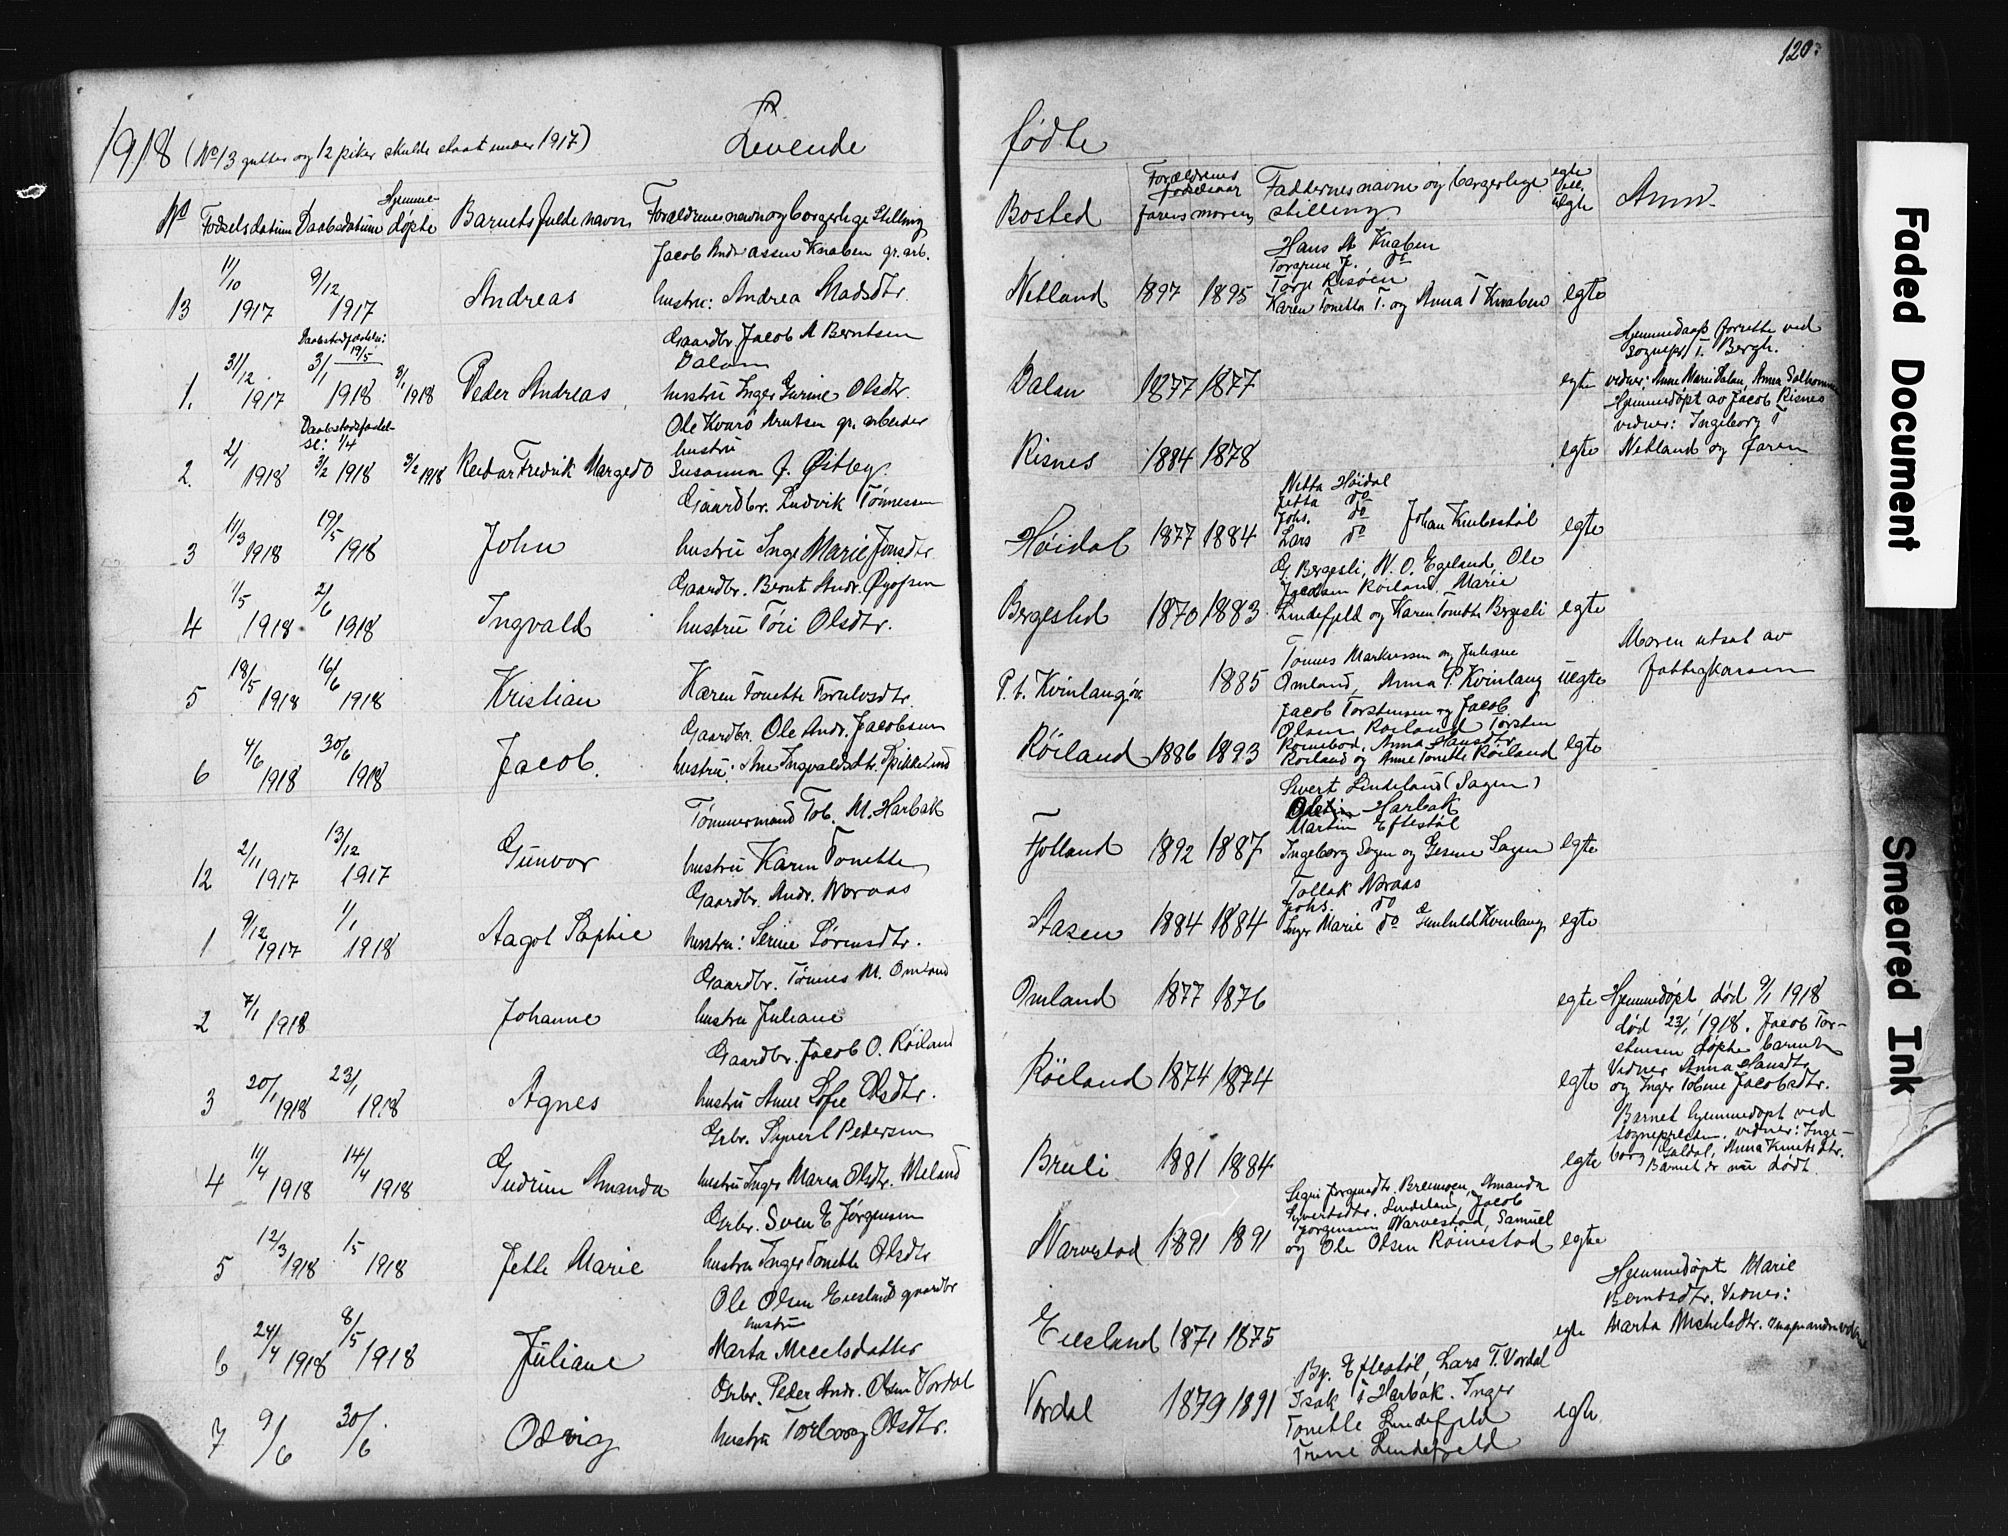 120.
1918 (No 13 gutter og 12 piker skulde staat under 1917)
Levende
fødte
No Fødselsdatum Daabsdatum Hjemmedøpte Barnets fulde navn Forældrenes navn og borgerlige Stilling
Bosted Forældrenes fødselsaar farens morens Faddernes navn og borgerlige stilling egte ell. uegte Anm.
13 11/10 1917 9/12 1917 Andreas
Jacob Andreassen Knaben gr. arb.
hustru: Andrea Madsdtr.
Netland 1897 1895
Hans A Knaben
J. do
Torje Risøen
Karen Tonetta T. og Anna T Knaben
egte
1. 31/12 1917 Daabstadfæstelse: 19/5 3/1 1918 3/1 1918 Peder Andreas
Gaardbr. Jacob A Berntsen
Dalen
hustru Inger Gurine Olsdtr.
Dalen 1877 1877 egte
Hjemmedaab forrette ved
sognepr. T. Bergh.
vidner: Anne Marie Dalen, Anna
2. 2/1 1918 Daabstadfæstelse: 1/4 3/2 1918 3/2 1918 Reidar Fredrik Margedo
Ole Kvaro Arntsen gr. arbeider
hustru
Susanna J. Østby
Risnes 1884 1878 egte
Hjemmedøpt av Jacob Risnes
vidner: Ingeborg T
Netland og faren
3 11/3 1918 19/5 1918 John
Gaardbr. Ludvik Tønnessen
hustru Inge Marie Jonsdtr
Høidal 1877 1884
Netta Høidal
Jetta do
Johs. do Johan Knibestøl
Lars do
egte
4 1/5 1918 2/6 1918 Ingvald
Gaardbr. Bernt Andr. Øysen
hustru Tori Olsdtr.
Bergesled 1870 1883
G. Bergesli, N. O. Egeland, Ole
Jacobsen Røiland, Marie
Lindefjeld og Karen Tonette Bergesli
egte
5 18/5 1918 16/6 1918 Kristian
Karen Tonette Torulvsdtr.
P.t. Kvinlaug 1885
Tønnes Markussen og Juliane
Omland, Anna P. Kvinlaug
uegte
Moren utsat av
fattigkassen
6 4/6 1918 30/6 1918 Jacob.
Gaardbr. Ole Andr. Jacobsen
hustru: Ane Ingvaldsdtr.
Røiland 1886 1893
Jacob Torstensen og Jacob
Olsen Røiland Torsten
Anna Hansdtr.
Røiland og Anne Tonette Røiland
egte
12 2/11 1917 13/12 1917 Gunvor
Tømmermand Tob. M. Harbak
hustru Karen Tonette
Fjotland 1892 1887
Sivert Lindeland (Sagen)
Harbak
Martin Eftestøl
Ingeborg Sagen og Gesine Sagen
egte
1 9/12 1917 1/1 1918 Aagot Sophie
Gaardbr. Andr. Noraas
hustru: Serine Sørensdtr.
Aasen 1884 1884
Tollak Noraas
Johs. do
Inger Marie do Gunhild Kvinlaug
egte
2 7/1 1918 Johanne
Gaardbr. Tønnes M. Omland
hustru Juliane
Omland 1877 1876 egte
Hjemmedøpt død 9/1 1918
3 20/1 1918 23/1 1918 Agnes
Gaardbr. Jacob O. Røiland
hustru Anne Sofie Olsdtr.
Røiland 1874 1874 egte
død 23/1 1918. Jacob Tor-
stensen døpte barnet
Vidner Anna Hansdtr
og Inger Tobine Jacobsdtr.
4 11/4 1918 14/4 1918 Gudrun Amanda
Grbr. Syvert Pedersen
hustru Inger Maria Olsdtr. Meland
Bruli 1881 1884 egte
Barnet hjemmedøpt ved
sognepresten, vidner: Inge-
borg Galdal, Anna Knutsdtr.
Barnet er nu dødt.
5 12/3 1918 1/5 1918 Jette Marie
Grbr. Sven E Jørgensen
hustru Inger Tonette Olsdtr
Narvestad 1891 1891
Sigri Jørgensdtr. Breimoen, Amanda
Syvertsdtr. Lindeland, Jacob
Jørgensen Narvestad, Samuel
og Ole Olsen Røinestad
egte
6 24/4 1918 8/5 1918 Juliane
Ole Olsen Eiesland gaardbr
hustru
Marta Mecelsdatter
Eiesland 1871 1875 egte
Hjemmedøpt Marie
Berntsdtr. Vidner:
Marta Michelsdtr. Ingen andre vidner
7 9/6 30/6 Odvig
Grbr. Peder Andr. Olsen Vordal
hustru Torborg Olsdtr.
Vordal 1879 1891
By. Eftestøl, Lars T. Vordal
Isak T Harbak. Inger
Tonette Lindefjeld
Trine Lindefjeld
egte
Faded Document
Smeared Ink